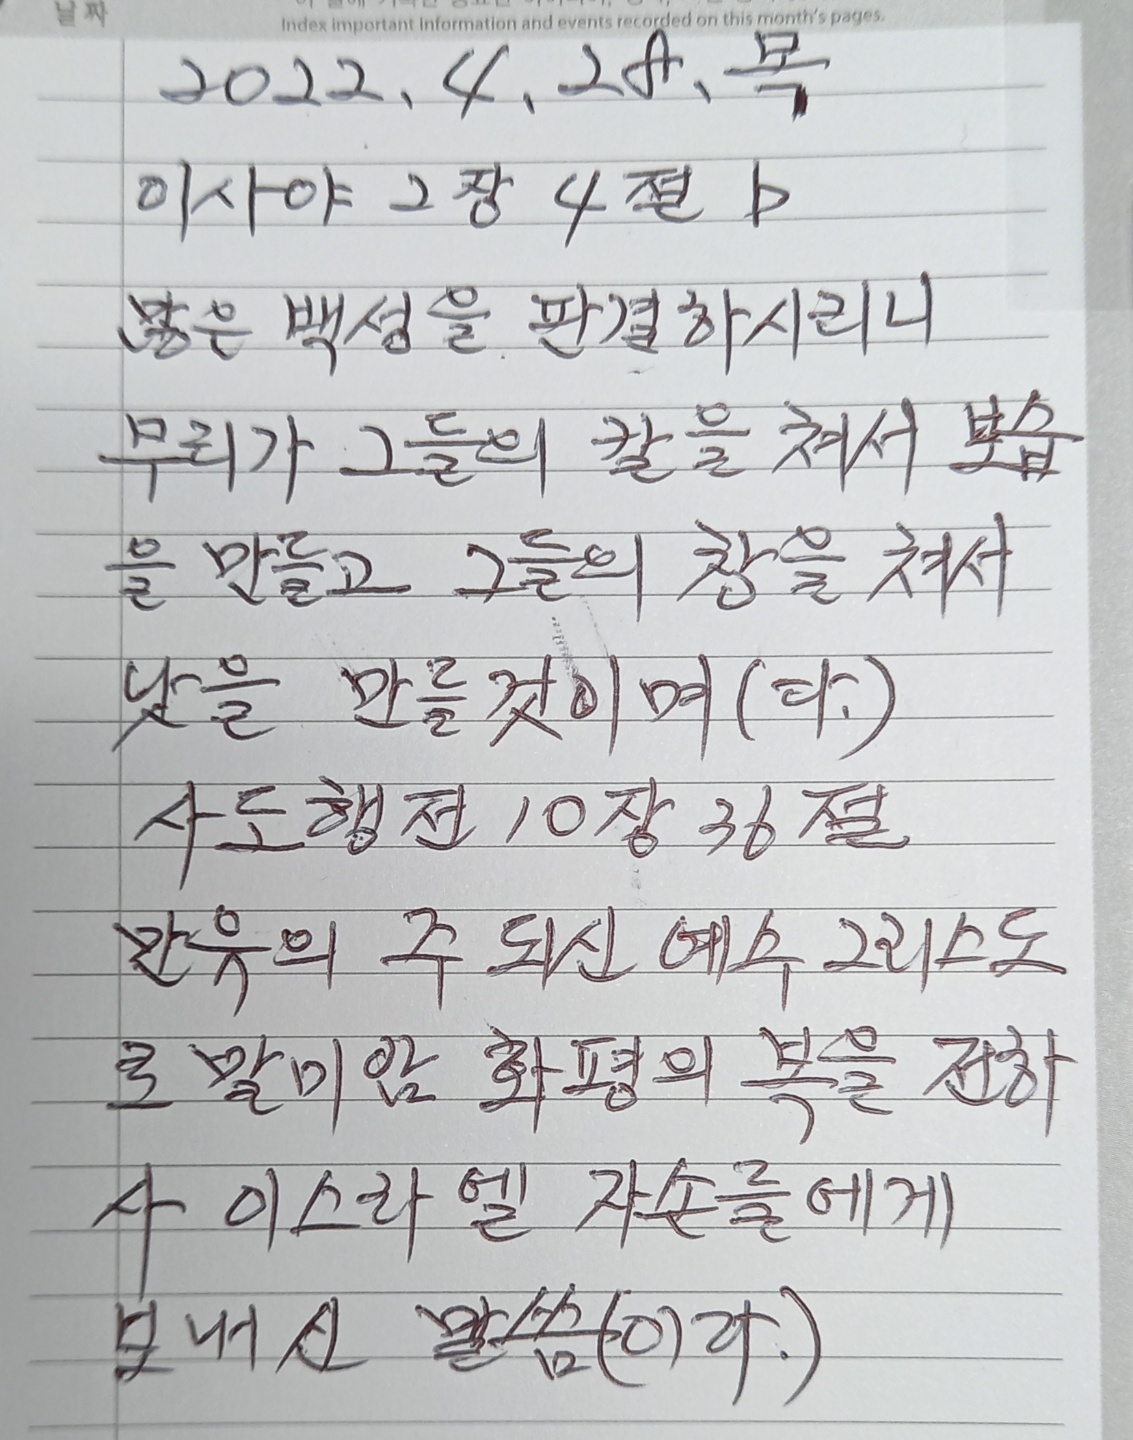 날짜
Index important Information and events recorded on this month's pages.
2022. 4. 28. 목
이사야 2장 4절 b
많은 백성을 판결하시리니
무리가 그들의 칼을 쳐서 보습
을 만들고 그들의 창을 쳐서
낫을 만들것이며(다.)
사도행전 10장 36절
만유의 주 되신 예수 그리스도
로 말미암 화평의 복을 전하
사 이스라엘 자손들에게
보내신 말씀(이라.)